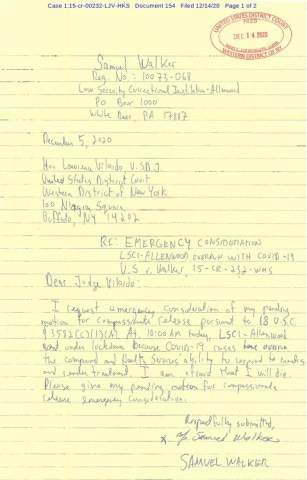 Case 1:15-cr-00232-LJV-HKS Document 154 Filed 12/14/20 Page 1 of 2
UNITED STATES DISTRICT COURT
FILED
DEC 14 2020
WESTERN DISTRICT OF NY
Samuel Walker
Reg. No.: 10073-068
Low Security Correctional Institution-Allenwood
PO Box 1000
White Deer, PA 17887
December 5, 2020
Hon. Lawrence Vilardo, U.S.D.J.
United States District Court
Western District of New York
100 Niagara Square
Buffalo, NY 14202
RE: EMERGENCY CONSIDERATION
LSCI-ALLENWOOD OVERRUN WITH COVID-19
U.S v. Walker 15-CR-232-WMS
Dear Judge Vilardo:
I request emergency consideration of my pending
motion for compassionate release pursuant to 18 U.S.C.
§ 3582(c)(1)(A). At 10:00 AM today, LSCI-Allenwood
went under lockdown because COVID-19 cases have overrun
the compound and Health Services ability to respond to
and render treatment. I am afraid that I will die.
Please give my pending motion for compassionate
release emergency consideration.
Respectfully submitted,
x Samuel Walker
SAMUEL WALKER